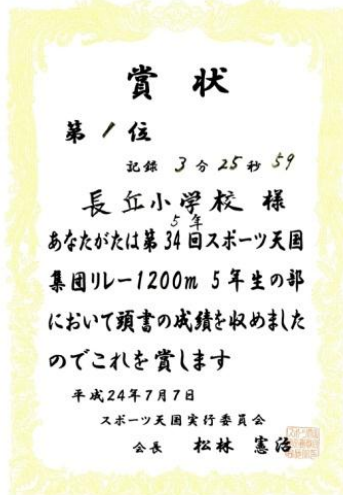 賞状
第1位
記録 3分25秒59
長丘小学校 様
5年
あなたがたは第34回スポーツ天国
集団リレー1200m 5年生の部
において頭書の成績を収めました
のでこれを賞します
平成24年7月7日
スポーツ天国実行委員会
会長 松林 憲治